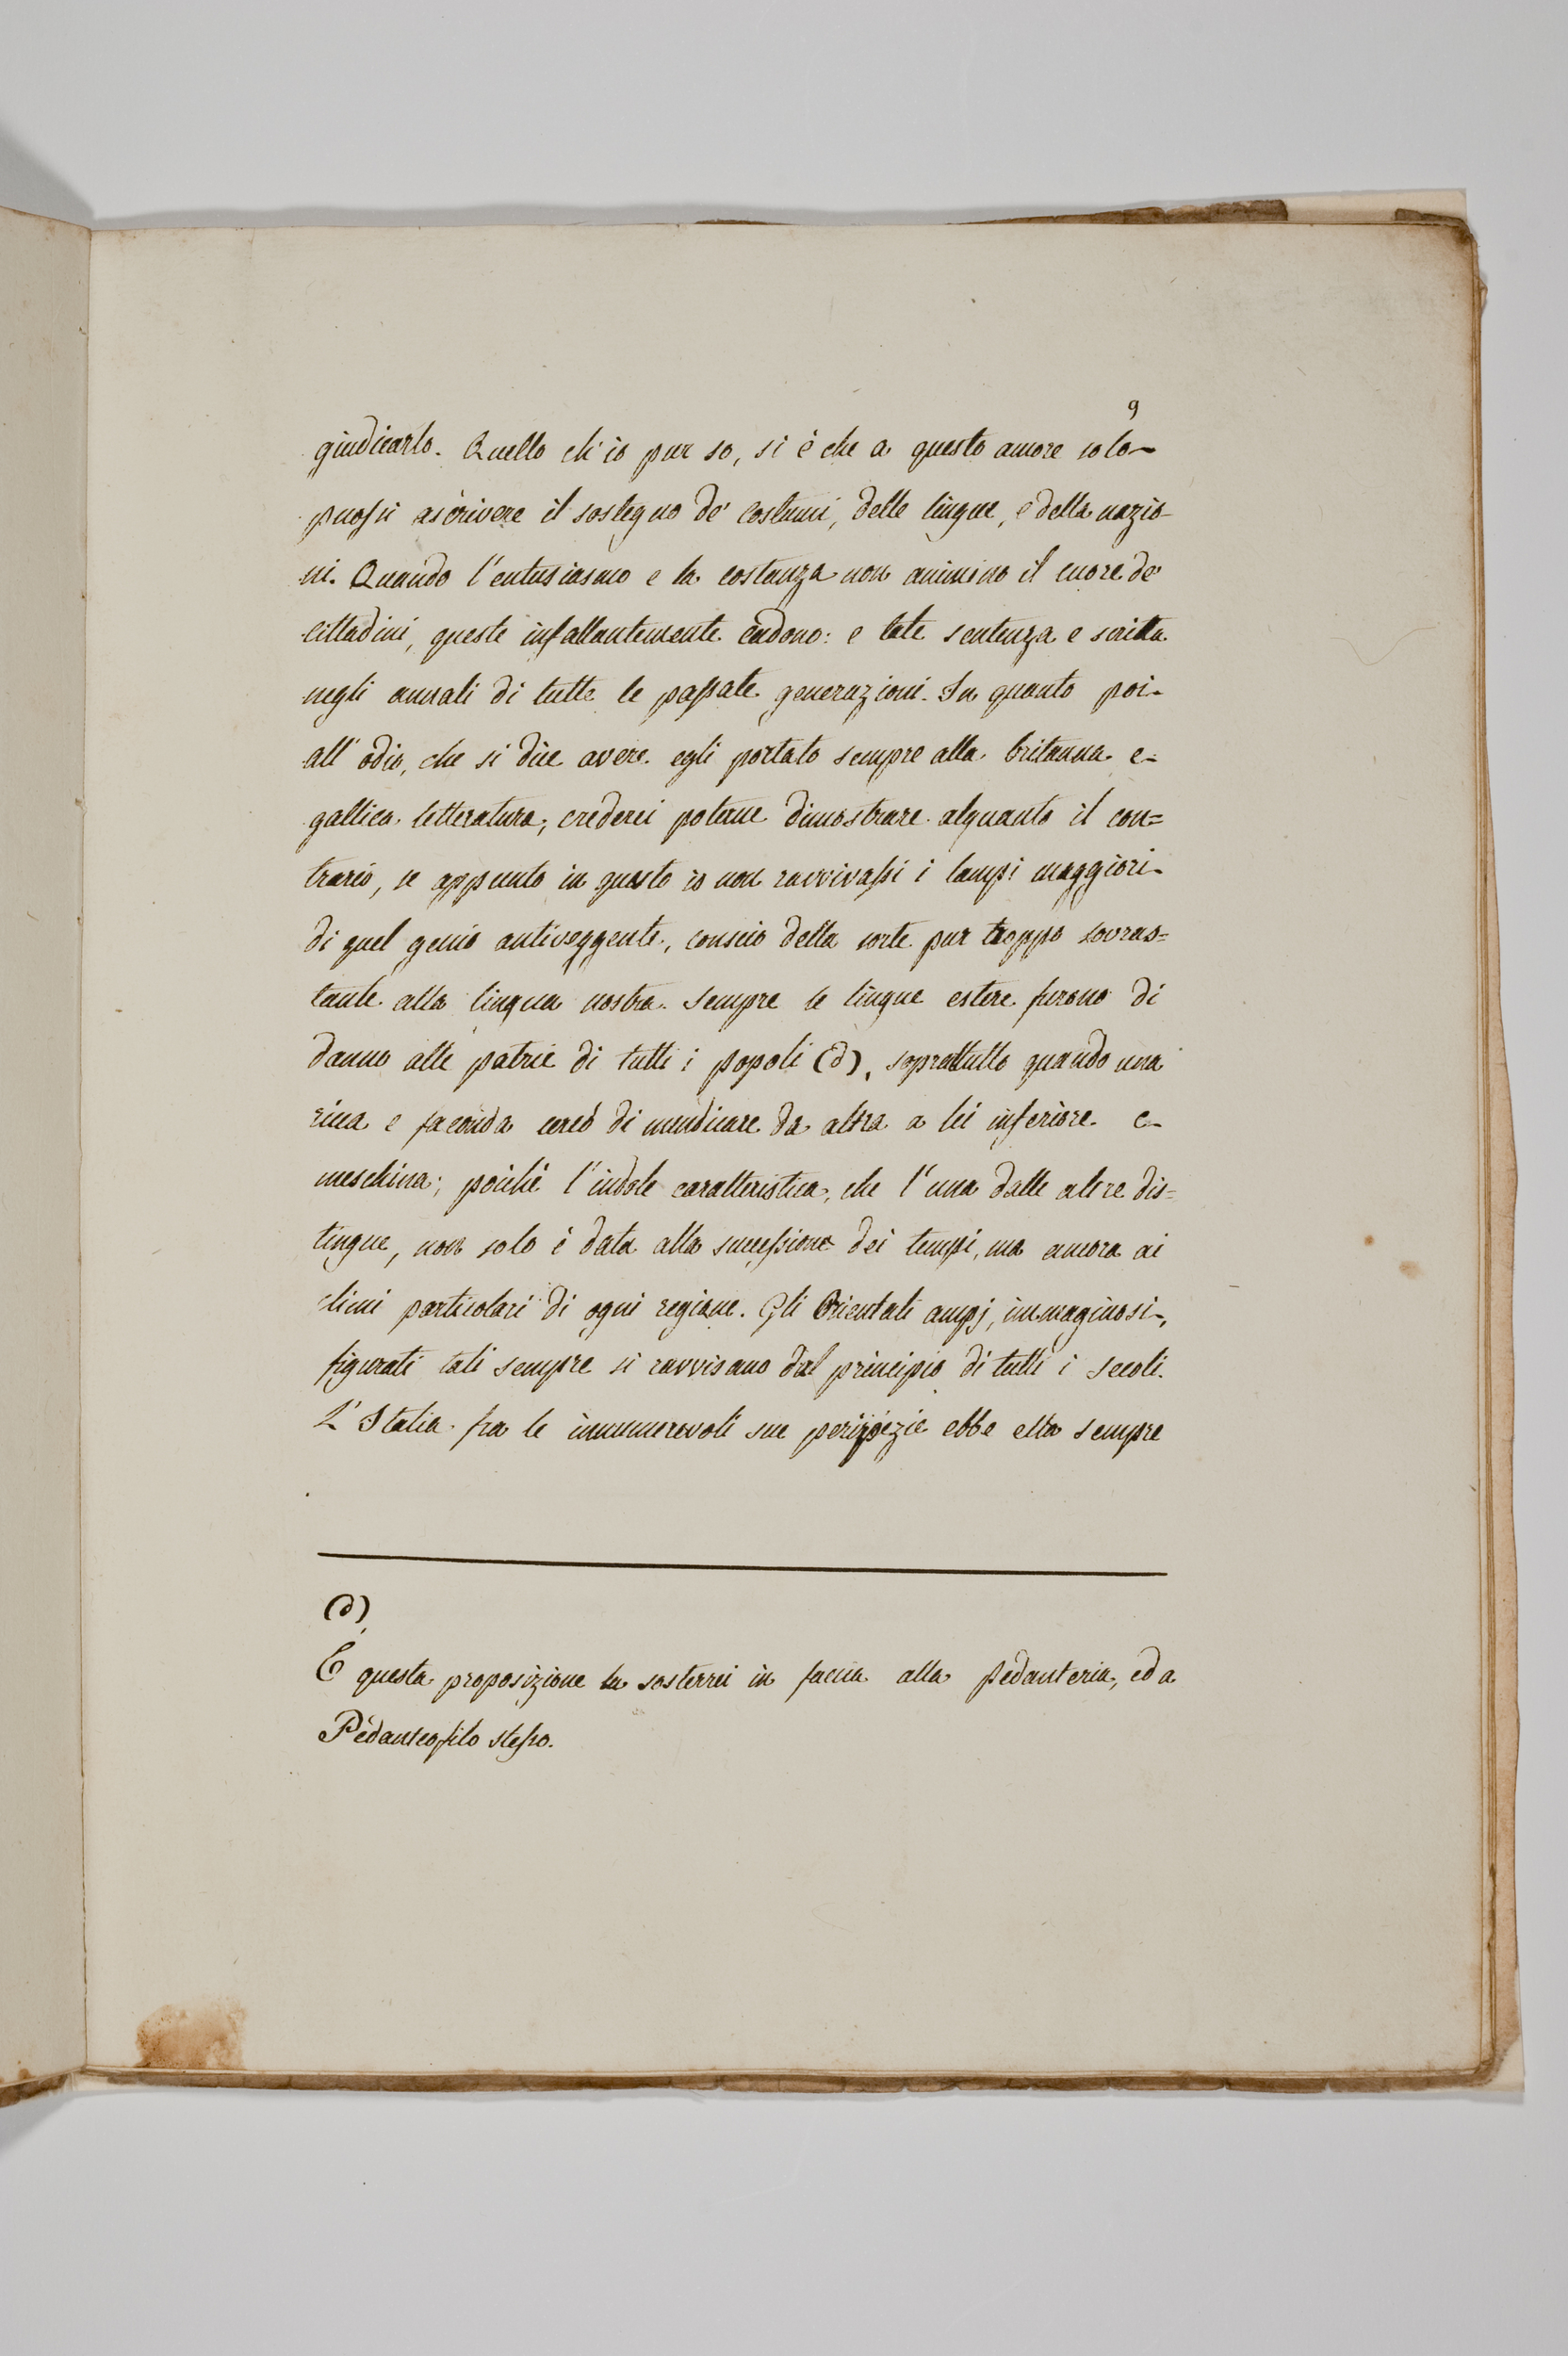 9
giudicarlo. Quello ch'io pur so, si è che a questo amore solo
puossi ascrivere il sostegno de' costumi, delle lingue, e della nazio-
ni. Quando l'entusiasmo e la costanza non animino il cuore de'
cittadini, queste infallantemente cadono: e tale sentenza e scritta
negli annali di tutte le passate generazioni. In quanto poi
all'odio, che si dice avere egli portato sempre alla britanna e
gallica letteratura; crederei poterne dimostrare alquanto il con=
trario, se appunto in questo io non ravvivassi i lampi maggiori
di quel genio antiveggente, conscio della sorte pur troppo sovras=
tante alla lingua nostra. Sempre le lingue estere furono di
danno alle patrie di tutti i popoli (d), soprattutto quando una
ricca e faconda cercò di mendicare da altra a lei inferiore e
meschina; poichè l'indole caratteristica, che l'una dalle altre dis=
tingue, non solo è data alla successione dei tempi, ma ancora ai
climi particolari di ogni regione. Gli Orientali ampj, immaginosi,
figurati tali sempre si ravvisano dal principio di tutti i secoli.
L'Italia fra le innumerevoli sue peripezie ebbe ella sempre
(d)
E questa proposizione la sosterrei in faccia alla Pedanteria, ed a
Pedanteofilo stesso.